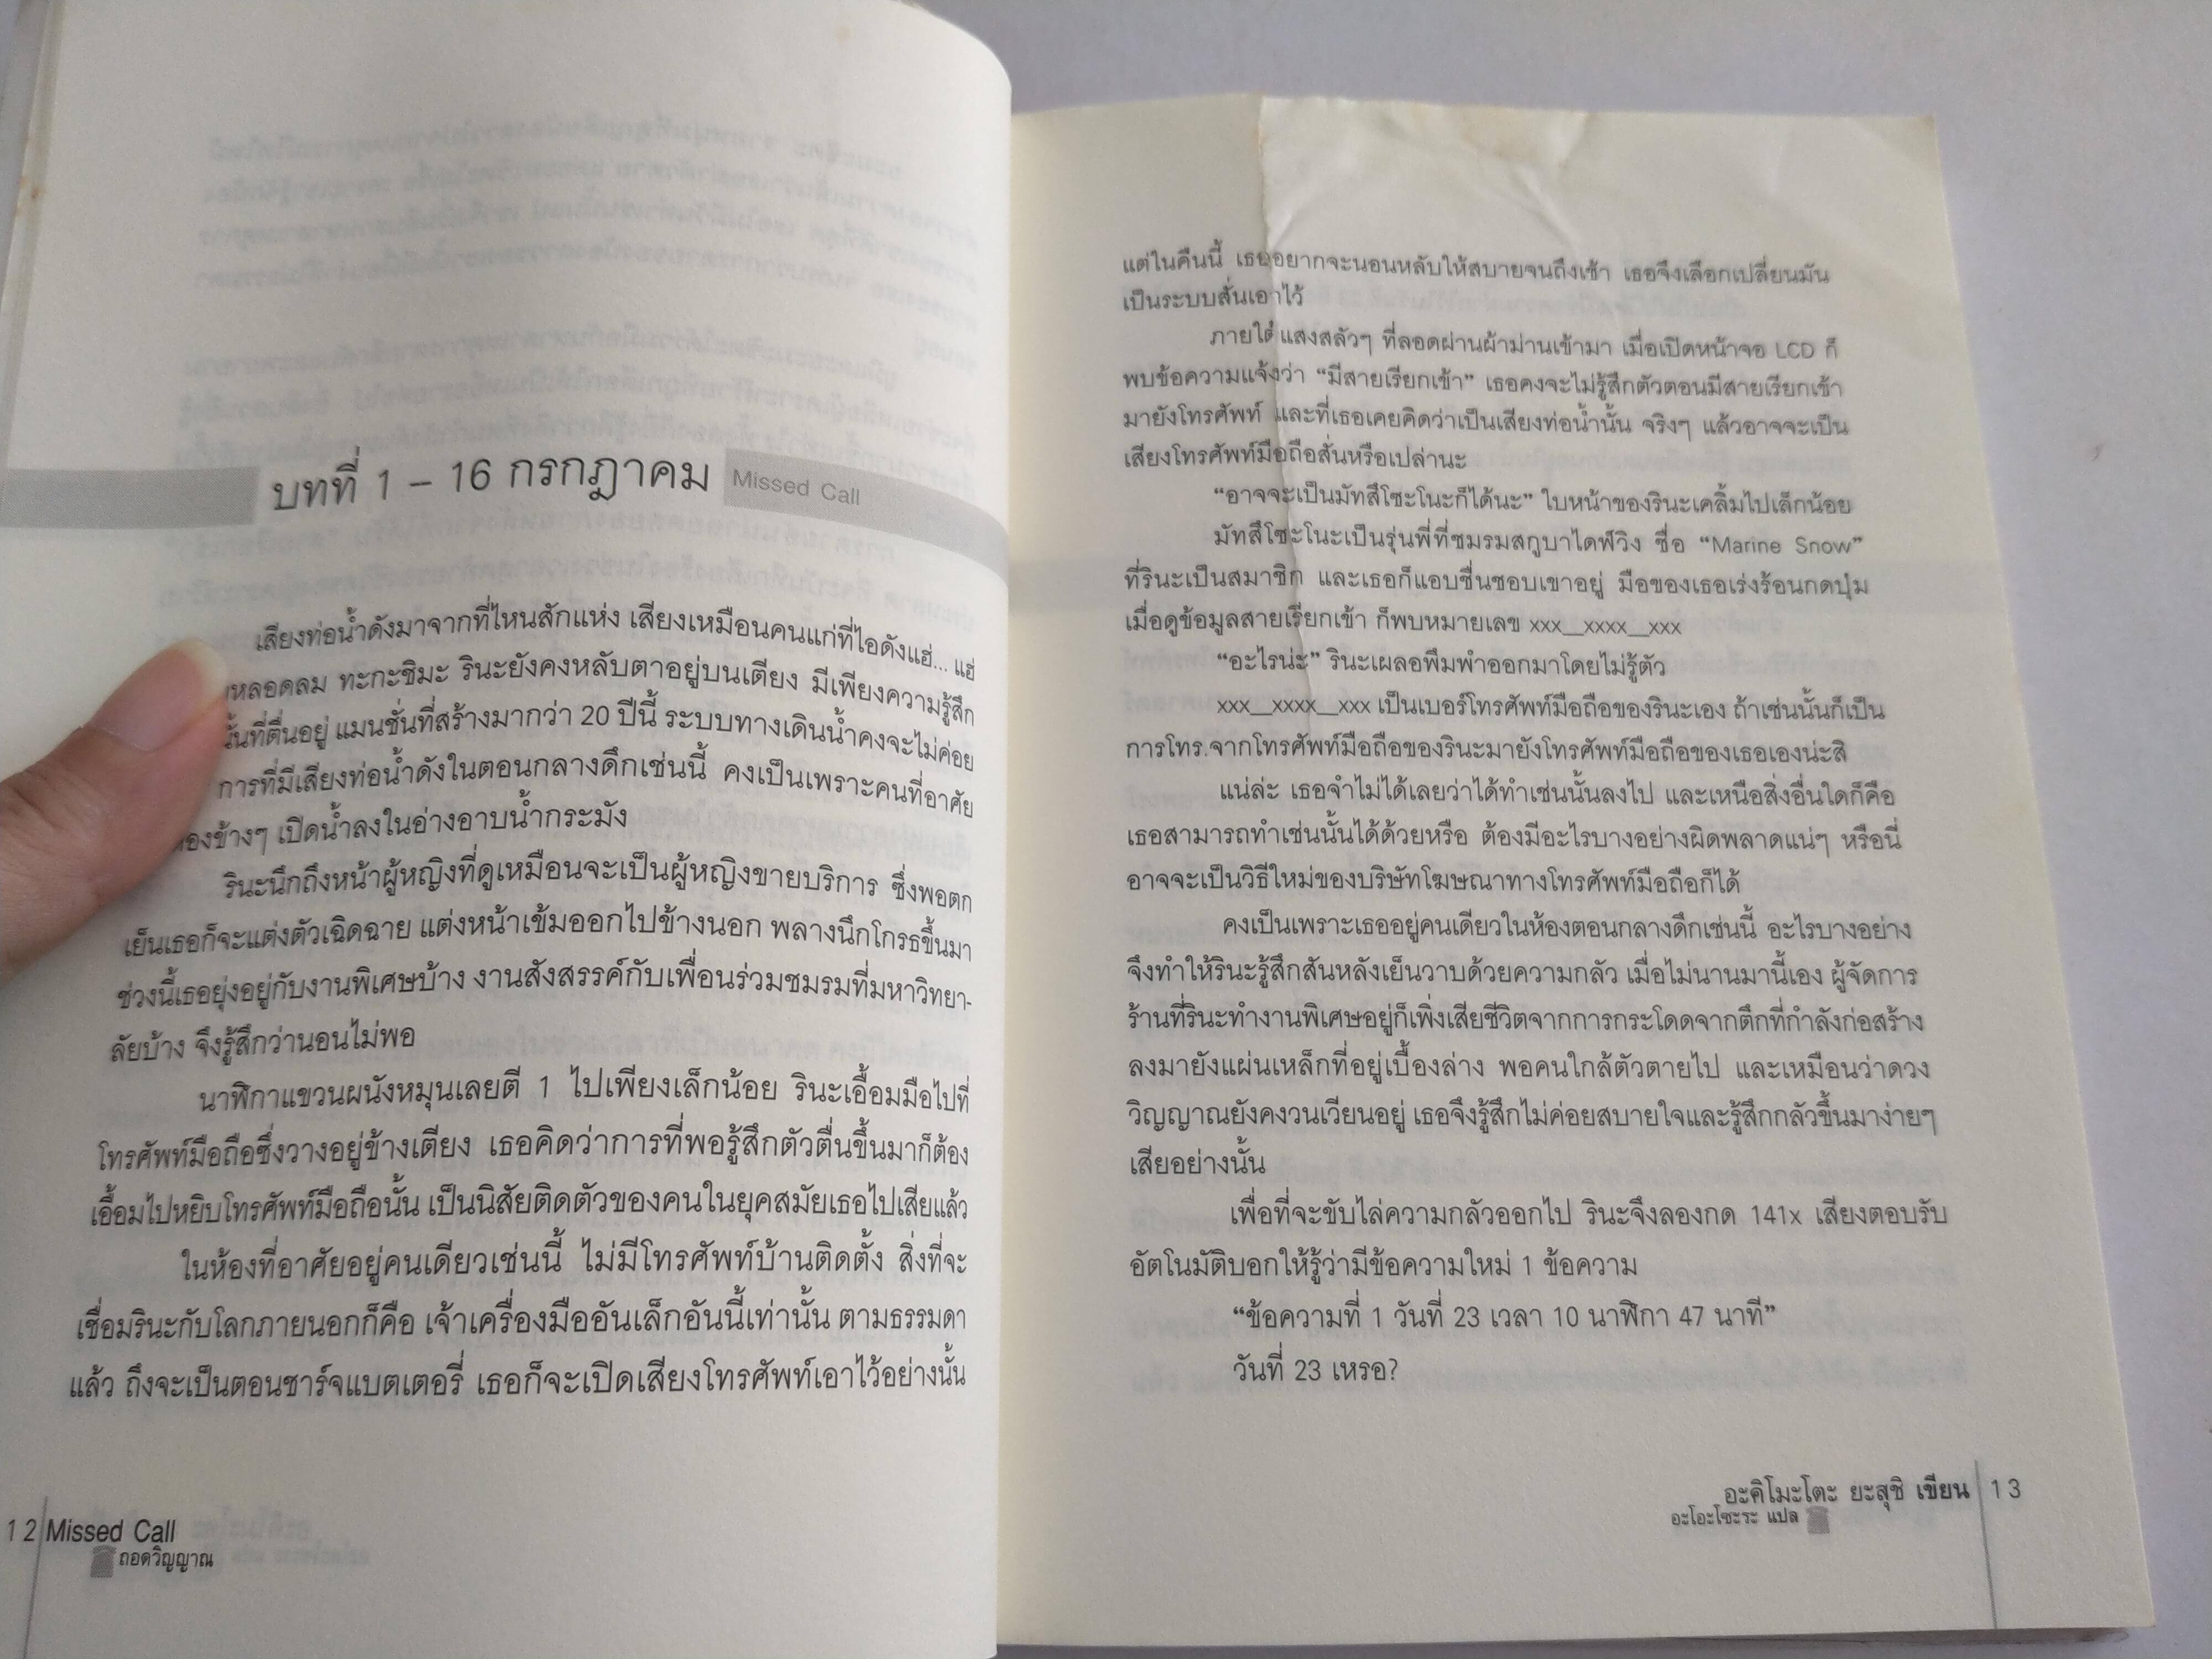 บทที่ 1 – 16 กรกฎาคม Missed Call
เสียงท่อน้ำดังมาจากที่ไหนสักแห่ง เสียงเหมือนคนแก่ที่ไอดังแฮ่... แฮ่
หลอดลม ทะกะชิมะ รินะยังคงหลับตาอยู่บนเตียง มีเพียงความรู้สึก
ที่ตื่นอยู่ แมนชั่นที่สร้างมากว่า 20 ปีนี้ ระบบทางเดินน้ำคงจะไม่ค่อย
การที่มีเสียงท่อน้ำดังในตอนกลางดึกเช่นนี้ คงเป็นเพราะคนที่อาศัย
ข้างๆ เปิดน้ำลงในอ่างอาบน้ำกระมัง
รินะนึกถึงหน้าผู้หญิงที่ดูเหมือนจะเป็นผู้หญิงขายบริการ ซึ่งพอตก
เย็นเธอก็จะแต่งตัวเฉิดฉาย แต่งหน้าเข้มออกไปข้างนอก พลางนึกโกรธขึ้นมา
ช่วงนี้เธอยุ่งอยู่กับงานพิเศษบ้าง งานสังสรรค์กับเพื่อนร่วมชมรมที่มหาวิทยา-
ลัยบ้าง จึงรู้สึกว่านอนไม่พอ
นาฬิกาแขวนผนังหมุนเลยตี 1 ไปเพียงเล็กน้อย รินะเอื้อมมือไปที่
โทรศัพท์มือถือซึ่งวางอยู่ข้างเตียง เธอคิดว่าการที่พอรู้สึกตัวตื่นขึ้นมาก็ต้อง
เอื้อมไปหยิบโทรศัพท์มือถือนั้น เป็นนิสัยติดตัวของคนในยุคสมัยเธอไปเสียแล้ว
ในห้องที่อาศัยอยู่คนเดียวเช่นนี้ ไม่มีโทรศัพท์บ้านติดตั้ง สิ่งที่จะ
เชื่อมรินะกับโลกภายนอกก็คือ เจ้าเครื่องมืออันเล็กอันนี้เท่านั้น ตามธรรมดา
แล้ว ถึงจะเป็นตอนชาร์จแบตเตอรี่ เธอก็จะเปิดเสียงโทรศัพท์เอาไว้อย่างนั้น
12 Missed Call
ถอดวิญญาณ
แต่ในคืนนี้ เธออยากจะนอนหลับให้สบายจนถึงเช้า เธอจึงเลือกเปลี่ยนมัน
เป็นระบบสั่นเอาไว้
ภายใต้แสงสลัวๆ ที่ลอดผ่านผ้าม่านเข้ามา เมื่อเปิดหน้าจอ LCD ก็
พบข้อความแจ้งว่า “มีสายเรียกเข้า” เธอคงจะไม่รู้สึกตัวตอนมีสายเรียกเข้า
มายังโทรศัพท์ และที่เธอเคยคิดว่าเป็นเสียงท่อน้ำนั้น จริงๆ แล้วอาจจะเป็น
เสียงโทรศัพท์มือถือสั่นหรือเปล่านะ
“อาจจะเป็นมัทสึโซะโนะก็ได้นะ” ใบหน้าของรินะเคลิ้มไปเล็กน้อย
มัทสึโซะโนะเป็นรุ่นพี่ที่ชมรมสกูบาไดฟ์วิง ชื่อ “Marine Snow”
ที่รินะเป็นสมาชิก และเธอก็แอบชื่นชอบเขาอยู่ มือของเธอเร่งร้อนกดปุ่ม
เมื่อดูข้อมูลสายเรียกเข้า ก็พบหมายเลข xxx_xxxx_xxx
“อะไรน่ะ” รินะเผลอพึมพำออกมาโดยไม่รู้ตัว
xxx_xxxx_xxx เป็นเบอร์โทรศัพท์มือถือของรินะเอง ถ้าเช่นนั้นก็เป็น
การโทร.จากโทรศัพท์มือถือของรินะมายังโทรศัพท์มือถือของเธอเองน่ะสิ
แน่ล่ะ เธอจำไม่ได้เลยว่าได้ทำเช่นนั้นลงไป และเหนือสิ่งอื่นใดก็คือ
เธอสามารถทำเช่นนั้นได้ด้วยหรือ ต้องมีอะไรบางอย่างผิดพลาดแน่ๆ หรือนี่
อาจจะเป็นวิธีใหม่ของบริษัทโฆษณาทางโทรศัพท์มือถือก็ได้
คงเป็นเพราะเธออยู่คนเดียวในห้องตอนกลางดึกเช่นนี้ อะไรบางอย่าง
จึงทำให้รินะรู้สึกสันหลังเย็นวาบด้วยความกลัว เมื่อไม่นานมานี้เอง ผู้จัดการ
ร้านที่รินะทำงานพิเศษอยู่ก็เพิ่งเสียชีวิตจากการกระโดดจากตึกที่กำลังก่อสร้าง
ลงมายังแผ่นเหล็กที่อยู่เบื้องล่าง พอคนใกล้ตัวตายไป และเหมือนว่าดวง
วิญญาณยังคงวนเวียนอยู่ เธอจึงรู้สึกไม่ค่อยสบายใจและรู้สึกกลัวขึ้นมาง่ายๆ
เสียอย่างนั้น
เพื่อที่จะขับไล่ความกลัวออกไป รินะจึงลองกด 141x เสียงตอบรับ
อัตโนมัติบอกให้รู้ว่ามีข้อความใหม่ 1 ข้อความ
“ข้อความที่ 1 วันที่ 23 เวลา 10 นาฬิกา 47 นาที”
วันที่ 23 เหรอ?
อะคิโมะโตะ ยะสุชิ เขียน 13
อะโอะโซะระ แปล